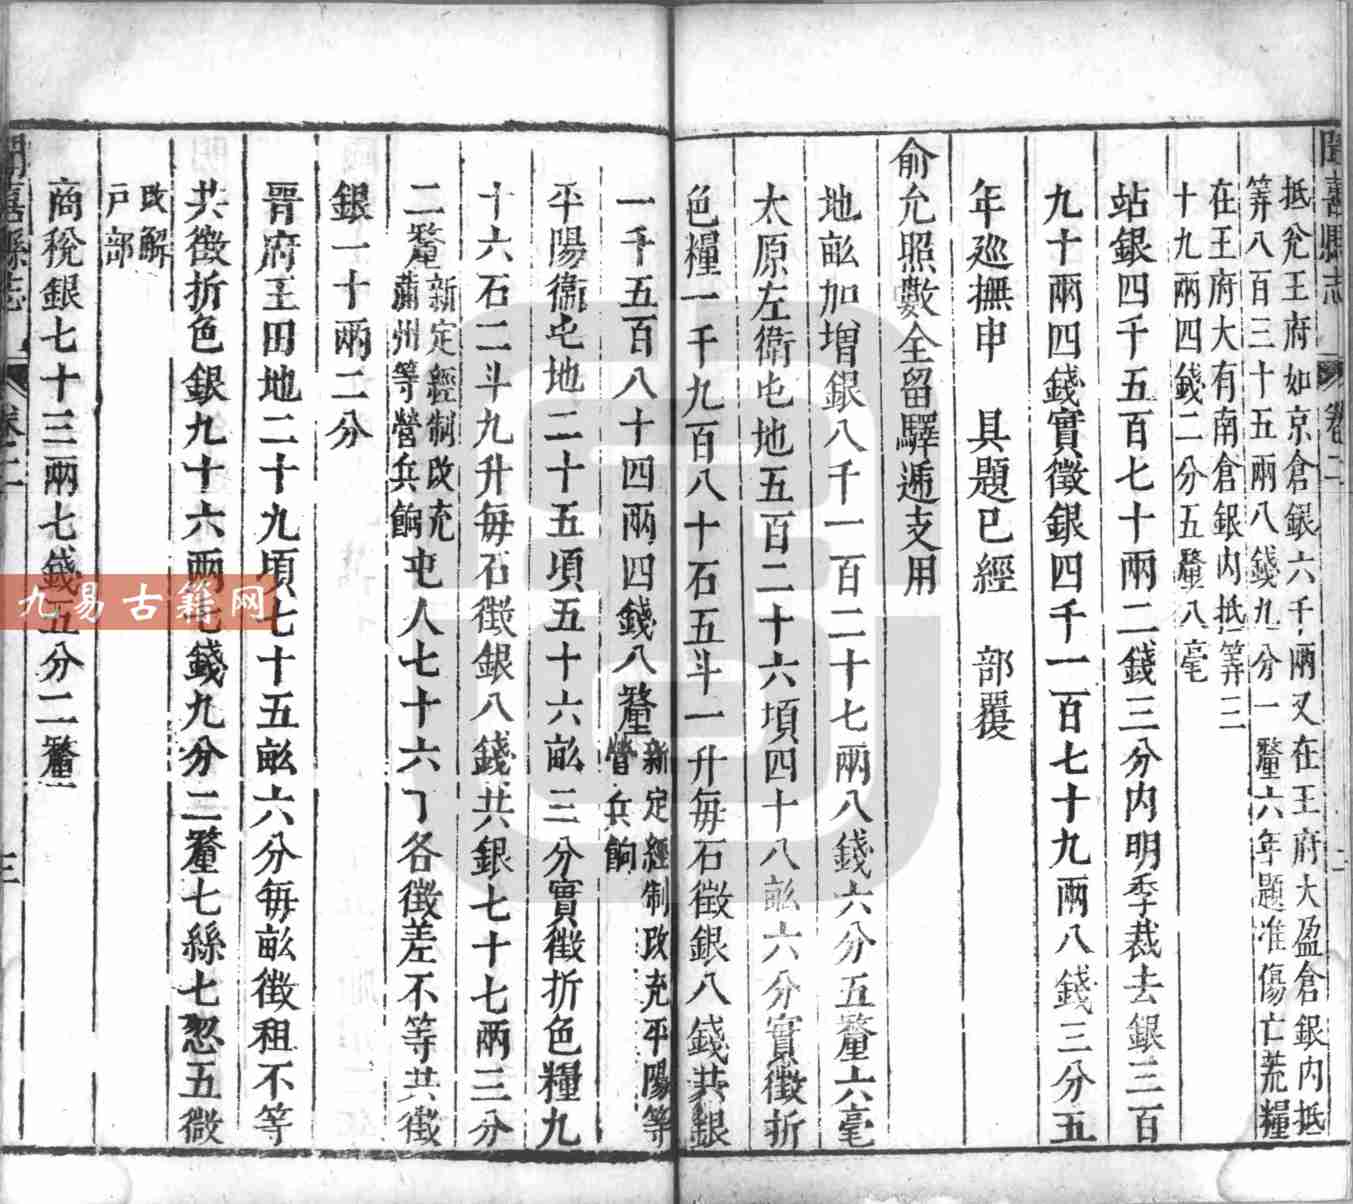 抵兊王府如京倉銀六千兩又在王府大盈倉銀内抵
筭八百三十五兩八錢九分一釐六年題准傷亡荒糧
在王府大有南倉銀内抵筭三
十九兩四錢二分五釐八毫
站銀四千五百七十兩二錢三分内明季裁去銀三百
九十兩四錢實徵銀四千一百七十九兩八錢三分五
年巡撫申 具題已經 部覆
俞允照數全留驛遞支用
地畝加增銀八千一百二十七兩八錢六分五釐六毫
太原左衛屯地五百二十六頃四十八畝六分實徵折
色糧一千九百八十石五斗一升每石徵銀八錢共銀
一千五百八十四兩四錢八釐
新定經制改充平陽等
營兵餉
平陽衞屯地二十五頃五十六畝三分實徵折色糧九
十六石二斗九升每石徵銀八錢共銀七十七兩三分
二釐
新定經制改充
蒲州等營兵餉
屯人七十六丁各徵差不等共徵
銀一十兩二分
晋府王田地二十九頃七十五畝六分每畝徵租不等
共徵折色銀九十六兩七錢九分二釐七絲七忽五微
改解
戸部
商稅銀七十三兩七錢五分二釐
聞喜縣志
卷二
二
聞喜縣志
卷二
三
九易古籍网